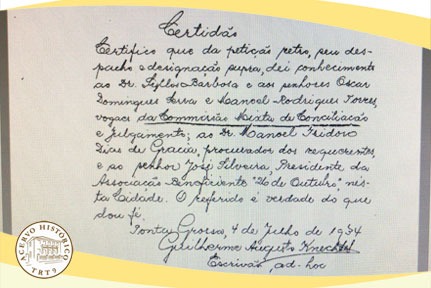 Certidão
Certifico que da petição retro, seu des-
pacho e designação supra, dei conhecimento
ao Dr. Barbosa e aos senhores Oscar
Domingues Serva e Manoel Rodrigues Torres,
vogaes da Commissão Mixta de Conciliação
e Julgamento; ao Dr. Manoel Isidoro
Dias de Gracia, procurador dos requerentes,
e ao senhor José Silveira, Presidente da
Associação Beneficiente "26 de Outubro" nes-
ta Cidade. O referido é verdade do que
dou fé.
Ponta Grossa, 4 de Julho de 1934
Guilherme Augusto Knechtel
Escrivão ad-hoc
ACERVO HISTÓRICO
TRT9